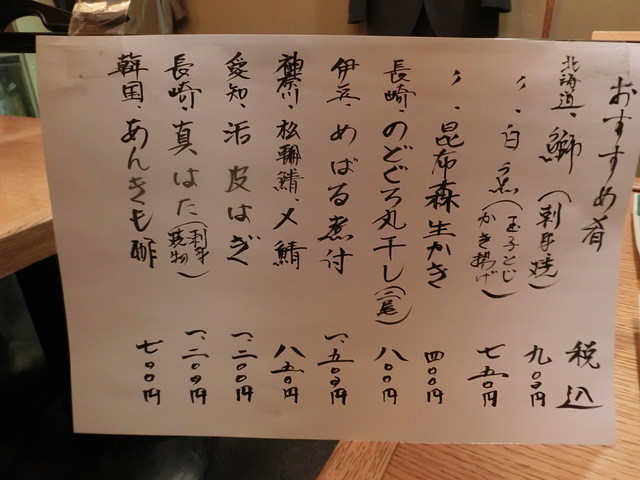 おすすめ肴 税込
北海道、鰤(刺身・焼) 九〇〇円
〃、白魚(玉子とじ かき揚げ) 七五〇円
〃、昆布森生かき 四〇〇円
長崎、のどぐろ丸干し(二尾) 八〇〇円
伊豆、めばる煮付 一、五〇〇円
神奈川、松輪鯖、〆鯖 八五〇円
愛知、活皮はぎ 一、二〇〇円
長崎、真はた(刺身 焼物) 一、二〇〇円
韓国、あんきも酢 七〇〇円